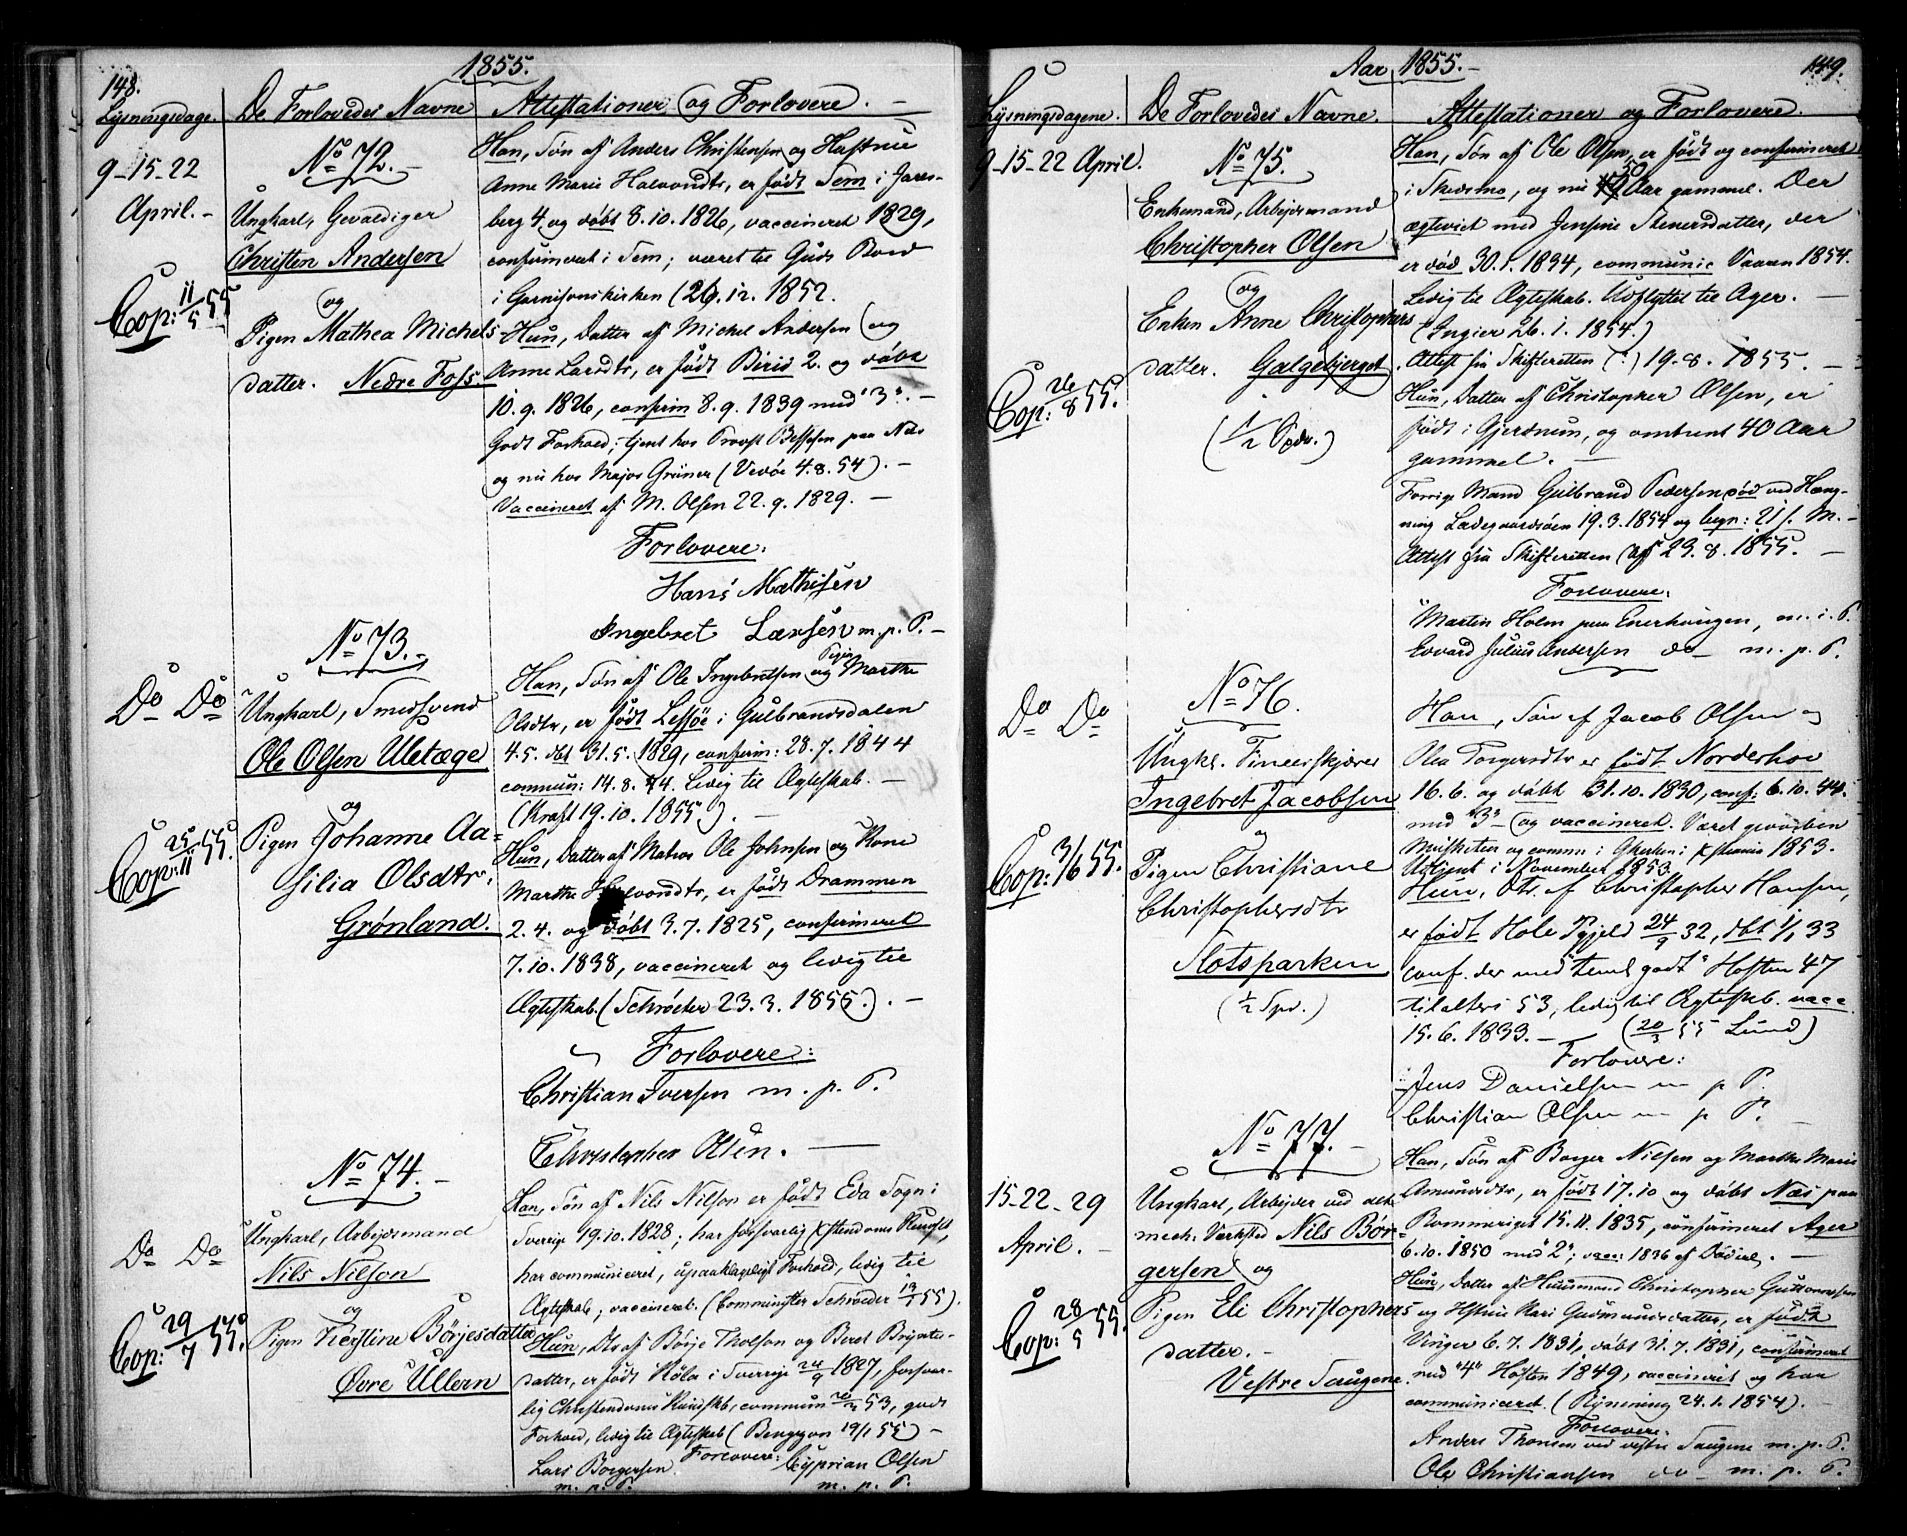 148.
1855.
Lysningsdage. De Forlovedes Navne Attestationer og Forlovere. -
9-15-22
April. -
No 72. -
Ungkarl, Gevaldiger
Christen Andersen
og
Pigen Mathea Michels-
datter. Nedre Foss.
Cop: 11/5 55
Han, Søn af Anders Christensen og Hustrue
Anne Marie Halvordtr, er født Sem i Jarls-
berg 4. og døbt 8.10.1826, vaccineret 1829,
confirmeret i Sem; været til Guds Bord
i Garnisonskirken (26.12.1852.
Hun, Datter af Michel Andersen og
Anne Larsdtr, er født Birid 2. og døbt
10.9.1826, confirm 8.9.1839 med "3". -
Godt Forhold; tjent hos Provst Bessesen paa Næs
og nu hos Major Grüner (Vedøe 4.8.54). -
Vaccineret af M. Olsen 22.9.1829. -
Forlovere:
Hans Mathisen
Ingebret Larsen m.p.P. -
Do Do
No 73. -
Ungkarl, Smedsvend
Ole Olsen Uletæge
og
Pigen Johanne Aa-
silia Olsdtr.
Grønland.
Cop: 25/11 55.
Han, Søn af Ole Ingebretsen og Pigen Marthe
Olsdtr, er født Lessøe i Gulbrandsdalen
4.5. dbt 31.5.1829, confirm: 28.7.1844
commun: 14.8.44. ledig til Ægteskab. -
(Kraft 19.10.1855). -
Hun, Datter af Matros Ole Johnsen og Kone
Marthe Halvordtr, er født Drammen
2.4. og døbt 3.7.1825, confirmeret
7.10.1838, vaccineret og ledig til
Ægteskab. (Schrøder 23.3.1855). -
Forlovere:
Christian Iversen m.p.P.
Christopher Olsen. -
Do Do
No 74. -
Ungkarl, Arbejdsmand
Nils Nilson
og
Pigen Kerstine Børjesdatter
Øvre Ullern
Cop: 29/7 55.
Han, Søn af Nils Nilson er født Eda Sogn i
Sverrig 19.10.1828; har forsvarlig Xstendoms Kundsk,
har communiceret, upaaklageligt Forhold, ledig til
Ægteskab; vaccineret. (Comminister Schrøeder 13/1 55).
Hun, Dtr af Børje Tholson og Beret Bryntes-
datter, er født Køla i Sverrige 24/9 1827, forsvar-
lig Christendoms Kundskb, commun 20/2 53, godt
Forhold, ledig til Ægteskab (Benggon 19/1 55) -
Forlovere:
Lars Borgersen Cyprian Olsen
m.p.P. m.p.P.
Aar 1855. -
149.
Lysningsdagene. De Forlovedes Navne. Attestationer og Forlovere.
9-15-22 April.
No 75.
Enkemand, Arbejdsmand
Christopher Olsen
og
Enken Anne Christophers
datter. Galgebjerget
(1/2 Spdr.)
Cop: 26/8 55.
Han, Søn af Ole Olsen, er født og confirmeret
i Skedsmo, og nu 50 Aar gammel. Der
ægteviet med Jensine Stenersdatter, der
er død 30.1.1834, communic Vaaren 1854.
Ledig til Ægteskab. Udflyttet til Ager. -
(Ingier 26.1.1854.)
Attest fra Skifteretten (:) 19.8.1855. -
Hun, Datter af Christopher Olsen, er
født i Gjerdrum, og omtrent 40 Aar
gammel. -
Forrige Mand Gulbrand Pedersen død ved Hæng-
ning Ladegaardsøen 19.3.1854 og begr: 21 s. M. -
Attest fra Skifteretten af 23.8.1855. -
Forlovere:
Martin Holm paa Enerhaugen, m.i.P.
Edvard Julius Andersen do - m.p.P.
Do Do
No 76.
Ungkl. Fineerskjærer
Ingebret Jacobsen
og
Pigen Christiane
Christophersdtr
Slotsparken
(1/2 Spd.)
Cop: 3/6 55.
Han, Søn af Jacob Olsen og
Olea Torgersdtr er født Norderhov
16.6. og døbt 31.10.1830, conf: 6.10.44.
med "3" og vaccineret. Været geworben
Musketeer og comm: i Gkerken i Xstiania 1853.
Udtjent i November 1853.
Hun, Dtr. af Christopher Hansen,
er født Hole Pgjeld 24/9 32, dbt 1/1 33
conf. der med "temml godt" Høsten 47
tilalters 53, ledig til Ægteskb. vacc
15.6.1833. - (20/3 55 Lund)
Forlovere:
Jens Danielsen m p P.
Christian Olsen m p P. -
15-22-29
April. -
No 77. -
Ungkarl, Arbejder ved det
mech. Værksted Nils Bør-
gersen og
Pigen Eli Christophers
datter. -
Vestre Saugene.
Cop: 28/5 55.
Han, Søn af Borger Nilsen og Marthe Marie
Amundsdtr, er født 17.10 og døbt Næs paa
Rommeriget 15.11.1835, confirmeret Ager
6.10.1850 med "2"; vacc: 1836 af Døderl. -
Hun, Datter af Huusmand Christopher Guttormsen
og Hstrue Kari Gudmundsdatter, er født
Vinger 6.7.1831, døbt 31.7.1831, confirmeret
med "4" Høsten 1849, vaccineret og har
communiceret. (Rynning 24.1.1854). -
Forlovere:
Anders Thomsen ved vestre Saugene m.p.P.
Ole Christiansen do - m.p.P.